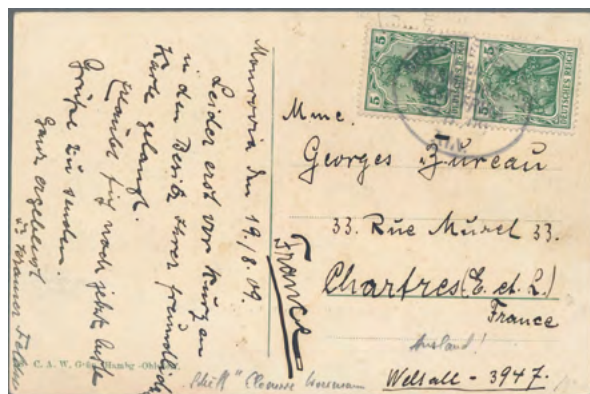 Monrovia den 19./8.09.
Leider erst vor Kurzen
in den Besitz Ihrer freundlichen
Karte gelangt.
Erlaube mir noch jetzt beste
Grüße zu senden.
Ganz ergebenst
5
DEUTSCHES REICH
5
DEUTSCHES REICH
Mme.
Georges Jureau
33. Rue Muret 33.
Chartres (E. et. L.)
France
France
Ausland!
Welsall - 3947.
C. A. W.
Hambg